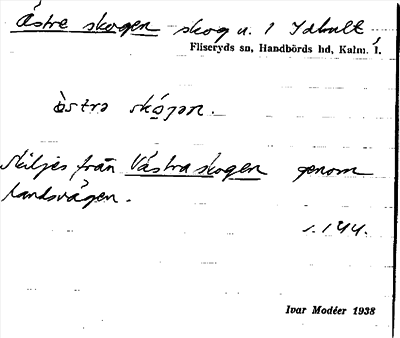 Östra skogen skog u. 1 Idhult
Fliseryds sn, Handbörds hd, Kalm. l.
òstra skógan.
Skiljes från Västra skogen genom
landsvägen.
s. 144.
Ivar Modéer 1938